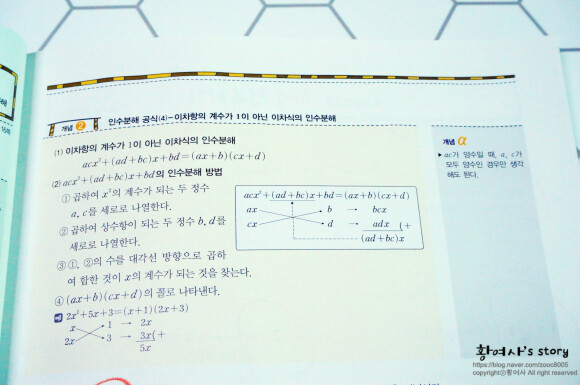 개념 2 인수분해 공식(4)-이차항의 계수가 1이 아닌 이차식의 인수분해
(1) 이차항의 계수가 1이 아닌 이차식의 인수분해
acx²+(ad+bc)x+bd=(ax+b)(cx+d)
(2) acx²+(ad+bc)x+bd의 인수분해 방법
① 곱하여 x²의 계수가 되는 두 정수
a, c를 세로로 나열한다.
② 곱하여 상수항이 되는 두 정수 b, d를
세로로 나열한다.
③ ①, ②의 수를 대각선 방향으로 곱하
여 합한 것이 x의 계수가 되는 것을 찾는다.
④ (ax+b)(cx+d)의 꼴로 나타낸다.
예 2x²+5x+3=(x+1)(2x+3)
x 1 → 2x
2x 3 → 3x(+
5x
acx²+(ad+bc)x+bd=(ax+b)(cx+d)
ax b → bcx
cx d → adx (+
(ad+bc)x
개념 α
▶ ac가 양수일 때, a, c가
모두 양수인 경우만 생각
해도 된다.
황여사's story
https://blog.naver.com/zooc8005
copyright ⓒ황여사 All right reserved